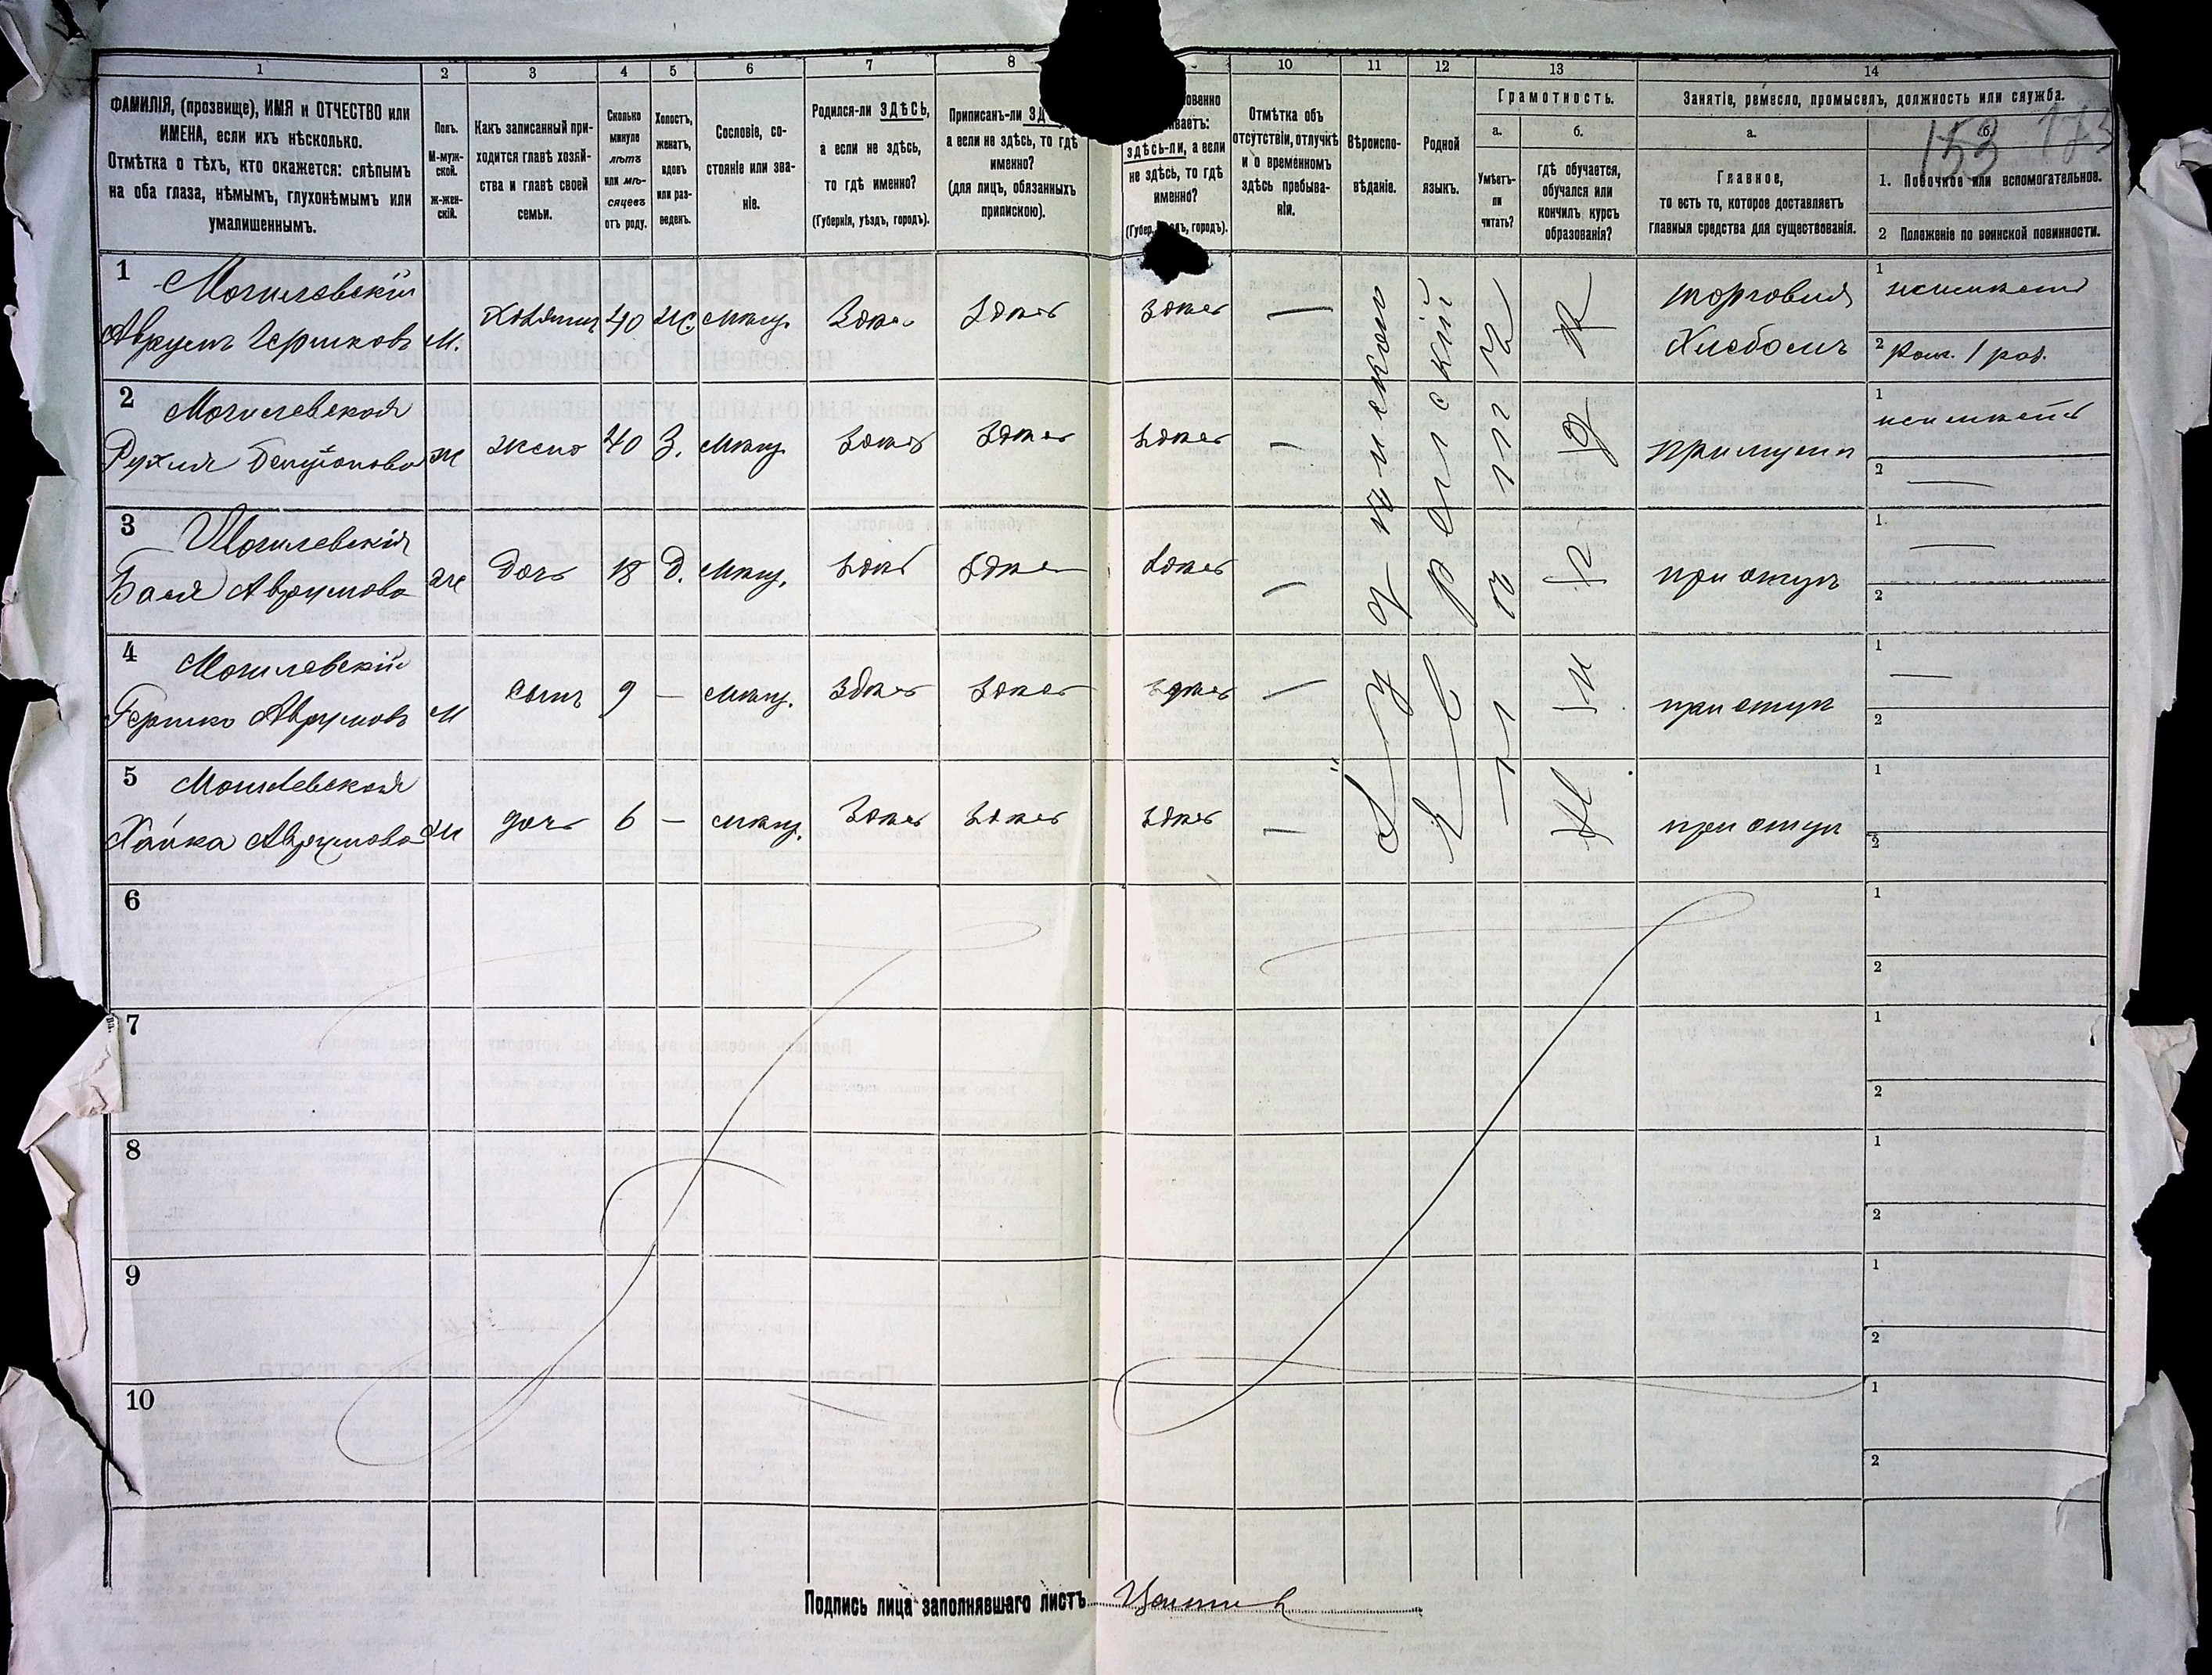 1 2 3 4 5 6 7 8 10 11 12 13 14
ФАМИЛІЯ, (прозвище), ИМЯ и ОТЧЕСТВО или
ИМЕНА, если ихъ нѣсколько.
Отмѣтка о тѣхъ, кто окажется: слѣпымъ
на оба глаза, нѣмымъ, глухонѣмымъ или
умалишеннымъ.
Полъ.
М-муж-
ской.
Ж-жен-
скій.
Какъ записанный при-
ходится главѣ хозяй-
ства и главѣ своей
семьи.
Сколько
минуло
лѣтъ
или мѣ-
сяцевъ
отъ роду.
Холостъ,
женатъ,
вдовъ
или раз-
веденъ.
Сословіе, со-
стояніе или зва-
ніе.
Родился-ли ЗДѢСЬ,
а если не здѣсь,
то гдѣ именно?
(Губернія, уѣздъ, городъ).
Приписанъ-ли
а если не здѣсь, то гдѣ
именно?
(для лицъ, обязанныхъ
припискою).
здѣсь-ли, а если
не здѣсь, то гдѣ
именно?
Отмѣтка объ
отсутствіи, отлучкѣ
и о временномъ
здѣсь пребыва-
ніи.
Вѣроиспо-
вѣданіе.
Родной
языкъ.
Грамотность.
а.
Умѣетъ-
ли
читать?
б.
гдѣ обучается,
обучался или
кончилъ курсъ
образованія?
Занятіе, ремесло, промыселъ, должность или служба.
а.
Главное,
то есть то, которое доставляетъ
главныя средства для существованія.
б.
153
1. Побочное или вспомогательное.
2 Положеніе по воинской повинности.
1
Могилевскій
Аврумъ Гершковъ
М.
Хозяинъ
40
Ж.
Мѣщ.
Здѣсь
Здѣсь
Здѣсь
—
Іудейское
Еврейскій
торговля
Хлебомъ
1
2
2
Могилевская
Рухля
ж
жена
40
З.
Мѣщ.
Здѣсь
Здѣсь
Здѣсь
—
при мужѣ
1
2 —
3
Могилевскія
Бася Аврумова
ж
дочь
18
Д.
Мѣщ.
Здѣсь
Здѣсь
Здѣсь
—
при отцѣ
1. —
2
4
Могилевскій
Гершко Аврумовъ
М
сынъ
9
—
Мѣщ.
Здѣсь
Здѣсь
Здѣсь
—
при отцѣ
1 —
2
5
Могилевская
Хайка Аврумова
ж
дочь
6
—
Мѣщ.
Здѣсь
Здѣсь
Здѣсь
—
при отцѣ
1
2
6
1
2
7
1
2
8
1
2
9
1
2
10
1
2
Подпись лица заполнявшаго листъ